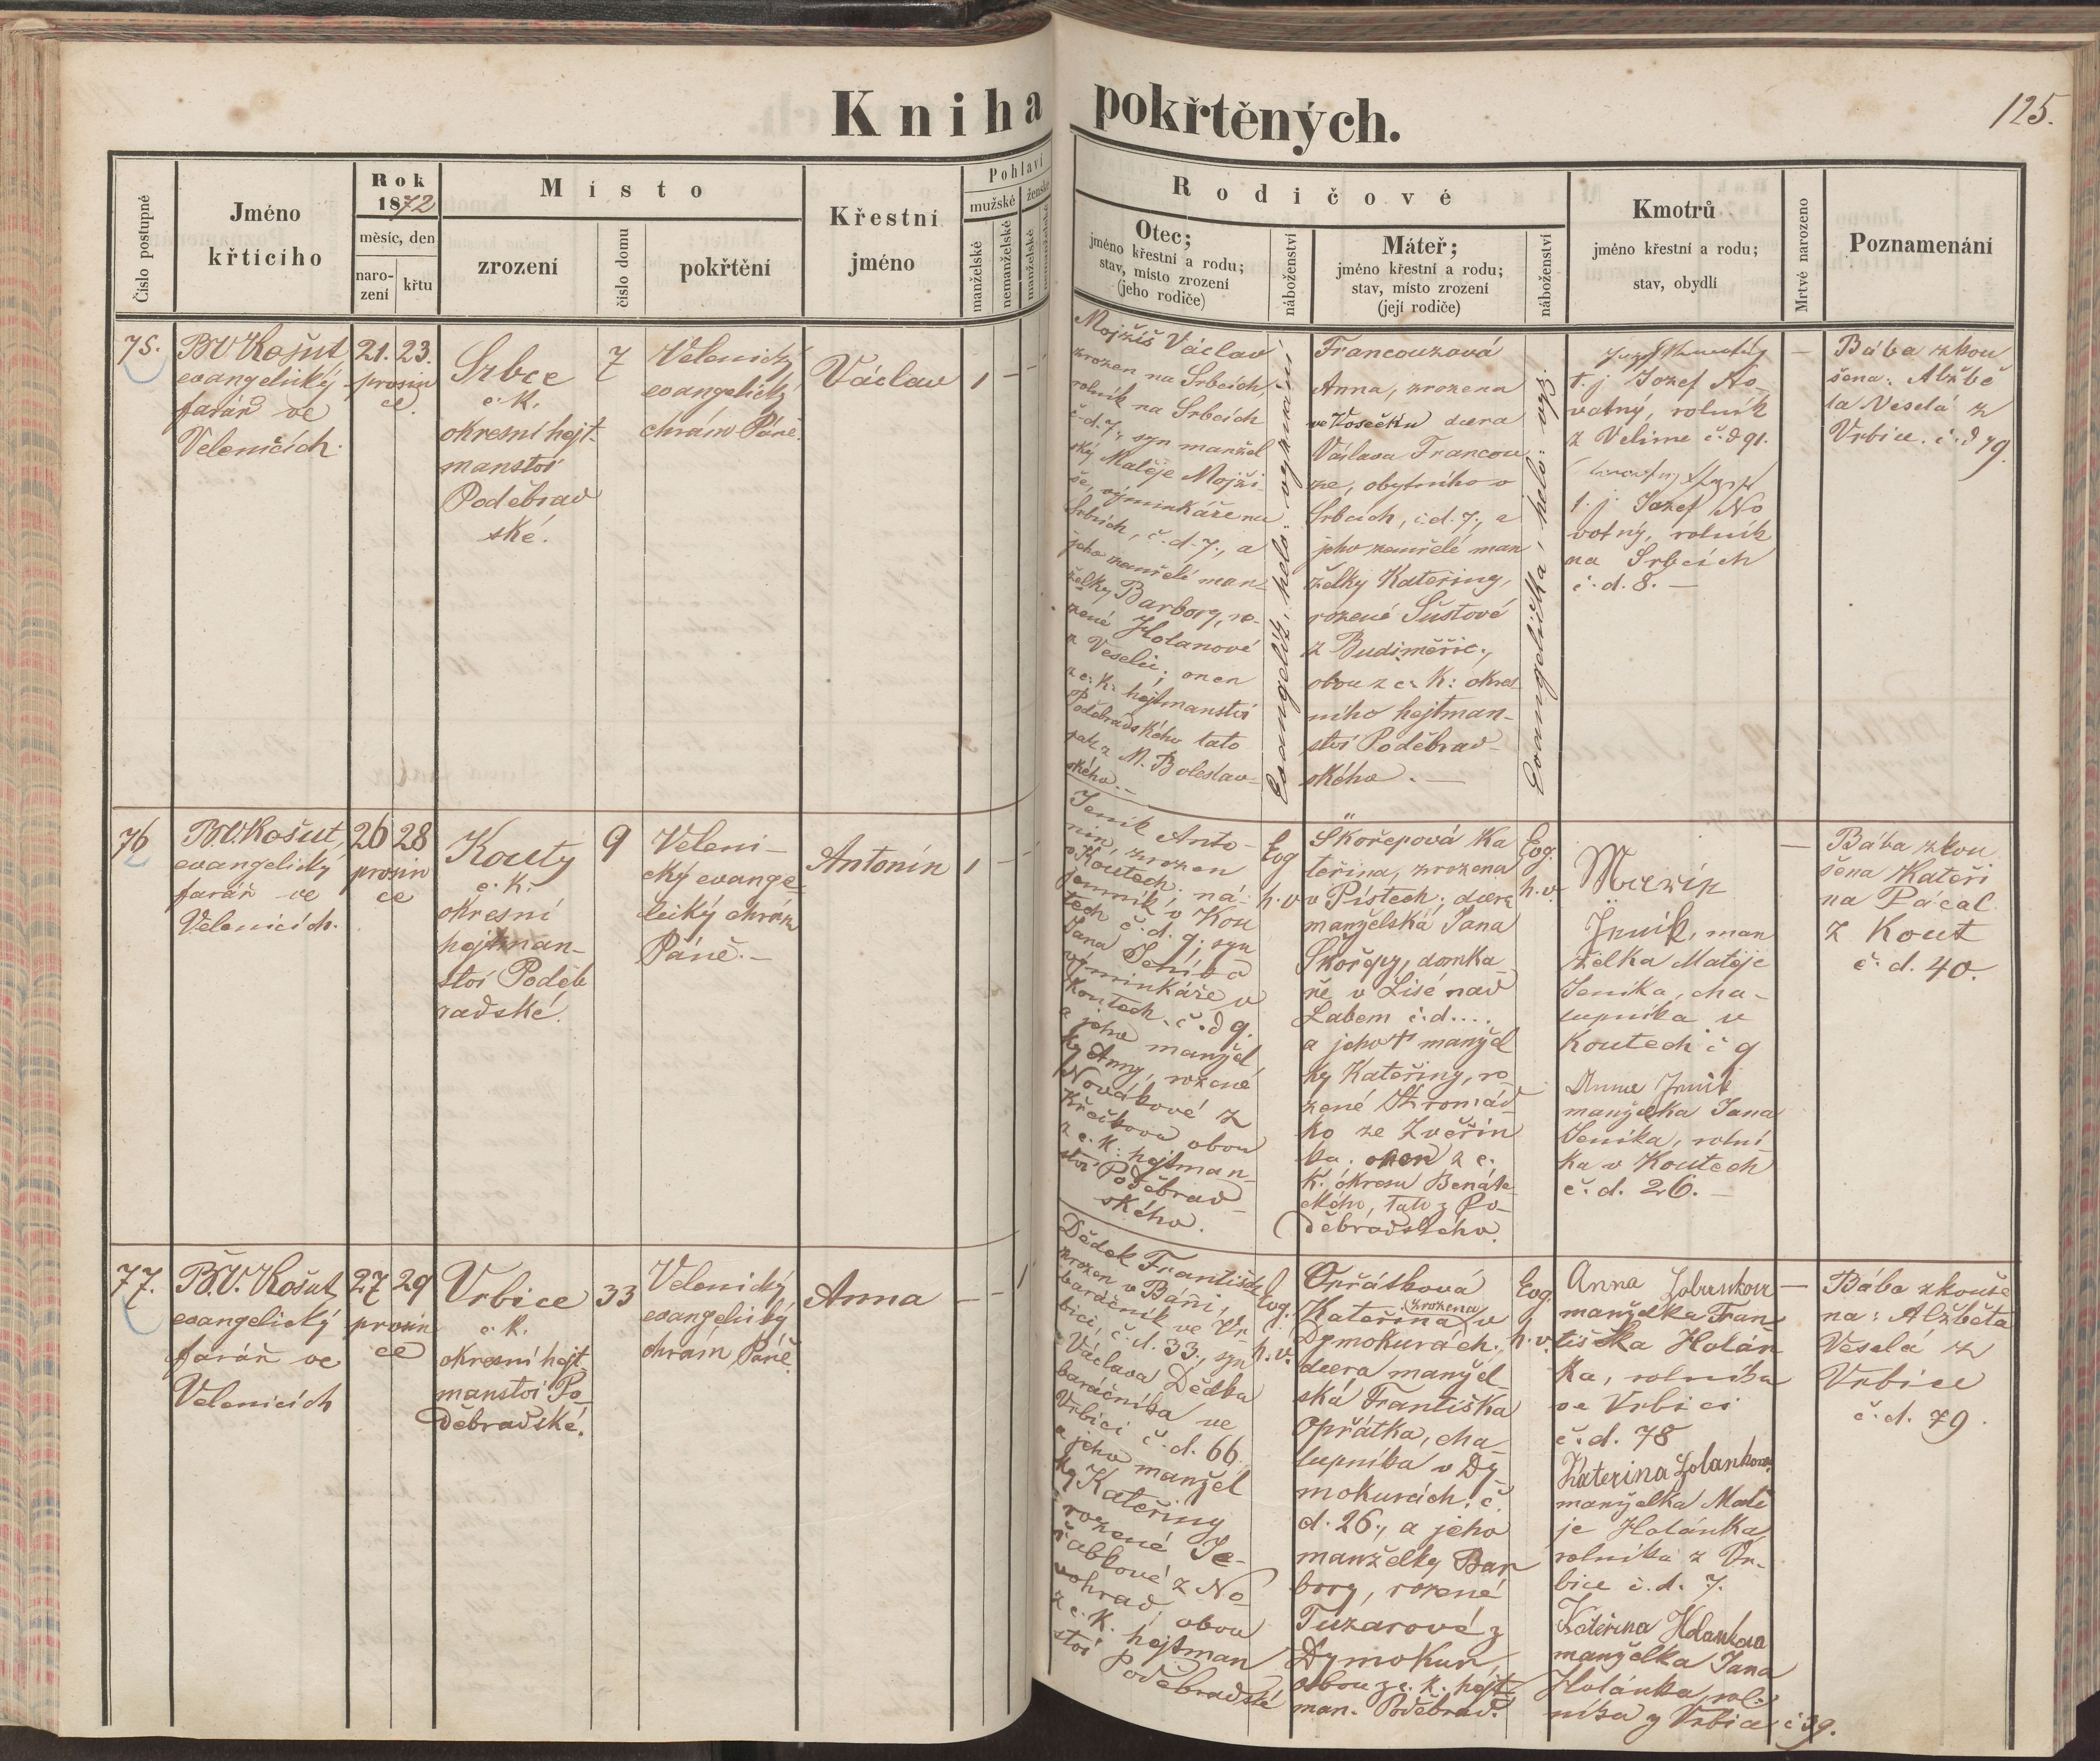 Kniha pokřtěných.
125.
Číslo postupné
Jméno
křtícího
Rok
1872
měsíc, den
naro-
zení
křtu
Místo
zrození
číslo domu
pokřtění
Křestní
jméno
Pohlaví
mužské
ženské
manželské
nemanželské
manželské
nemanželské
Rodičové
Otec;
jméno křestní a rodu;
stav, místo zrození
(jeho rodiče)
náboženství
Máteř;
jméno křestní a rodu;
stav, místo zrození
(její rodiče)
náboženství
Kmotrů
jméno křestní a rodu;
stav, obydlí
Mrtvě narozeno
Poznamenání
75.
BV Košut,
evangelický
farář ve
Velenicích.
21. 23.
prosin
ce.
Srbce
c. K.
okresní hejt-
manství
Poděbrad
ské.
7
Velenický
evangelický
chrám Páně.
Václav
1 – –
Mojžíš Václav
zrozen na Srbcích,
rolník na Srbcích
č. d. 7., syn manžel
ský Matěje Mojží-
še, výminkáře na
Srbcích, č. d. 7., a
jeho zemřelé man-
želky Barbory, ro-
zené Holanové
z Veselic; onen
z c. K. hejtmanství
Poděbradského tato
pak z M. Boleslav-
ského.
Evangelík, helv: vyznání
Francouzová
Anna, zrozena
ve Vosečku dcera
Václava Francou
ze, obytného v
Srbcích, č. d. 7., a
jeho zemřelé man
želky Kateřiny,
rozené Šustové
z Budiměřic.,
obou z c. K: okres
ního hejtman-
ství Poděbrad-
ského. —
Evangelička, helv: vyz.
t. j. Jozef No-
vatný, rolník
z Velime č. d 91.
t. j. Jozef No
votný, rolník
na Srbcích
č. d. 8. —
—
Bába zkou
šena: Alžbě
ta Veselá z
Vrbice. č. d 79.
76
B.V. Košut,
evangelický
farář ve
Velenicích.
26 28
prosin
ce
Kouty
c. K.
okresní
hejtman-
ství Poděb
radské.
9
Veleni-
cký evange-
lický chrám
Páně. –
Antonín
1 –
Jeník Anto-
nín, zrozen
v Koutech; ná-
jemník v Kou
tech č. d. 9; syn
Jana Jeníka
výminkáře v
Koutech. č. d 9.
a jeho manžel
ky Anny, rozené
Novákové z
Křečkova obou
z c. K. hejtman-
ství Poděbrad-
ského.
Evg
h. v
Skořepová Ka
teřina, zrozena
v Pístech; dcera
manželská Jana
Skořepy, domka-
ře v Lisé nad
Labem č. d....
a jeho † manžel
ky Kateřiny, ro
zené Stromád
ko ze Zvěřín
ka. onen z c.
K. okresu Benáte
ckého, tato z Po-
děbradského.
Evg.
h. v.
Jeník, man
želka Matěje
Jeníka, cha-
lupníka v
Koutech č 9
Anna Jeník
manželka Jana
Jeníka, rolní
ka v Koutech
č. d. 26. —
—
Bába zkou
šena Kateři
na Pácal
z Kout
č. d. 40.
77.
B.V. Košut,
evangelický
farář ve
Velenicích
27 29
prosin
ce
Vrbice
c. K.
okresní hejt
manství Po
děbradské.
33
Velenický
evangelický
chrám Páně.
Anna
– – 1
Dědek František
zrozen v Báni,
baráčník ve Vr
bici, č. d. 33., syn
Václava Dědka
baráčníka ve
Vrbici č. d. 66.
a jeho manžel
ky Kateřiny
rozené Je-
řabkové z No
vohrad, obou
z c. K. hejtman
ství Poděbradské
Evg.
h. v.
Opřátková
Kateřina zrozena v
Dymokurách.,
dcera manžel
ská Františka
Opřátka, cha-
lupníka v Dy-
mokurách. č.
d. 26., a jeho
manželky Bar
bory, rozené
Tuzarové z
Dymokur,
obou z c. k. hejt
man. Poděbrad.
Evg.
h. v.
Anna
manželka Fran
tiška Holán
ka, rolníka
ve Vrbici
č. d. 78
Katerina Holankowa
manželka Matě
je Holánka,
rolníka z Vr-
bice č. d. 7.
Kateřina Holankova
manželka Jana
Holánka, rol-
níka z Vrbice č 39.
—
Bába zkouše
na: Alžběta
Veselá z
Vrbice
č. d. 79.